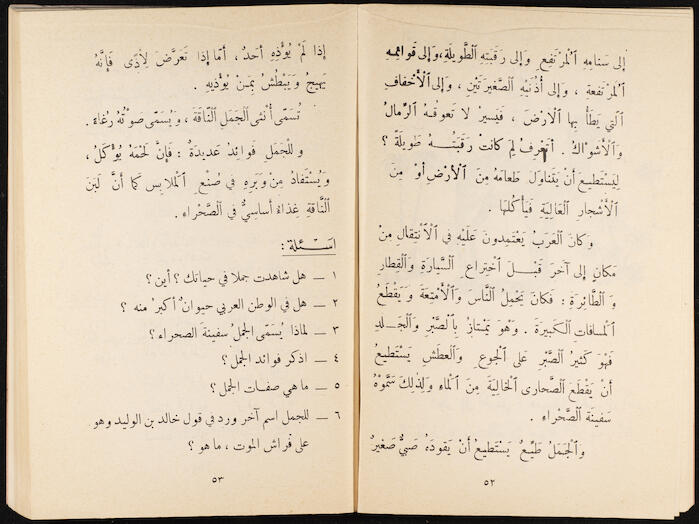 إلى سَنامِهِ ٱلْمُرْتَفِعِ وَإلى رَقَبَتِهِ ٱلطَّويلَةِ، وَإلى قَوائِمِهِ
ٱلْمُرْتَفِعَةِ ، وَإلى أُذُنَيْهِ ٱلصَّغيرَتَيْنِ ، وَإلى ٱلْأَخْفافِ
ٱلَّتي يَطَأُ بِها ٱلْأَرْضَ ، فَيَسيرُ لا تَعوقُهُ ٱلرِّمالُ
وَٱلْأَشْواكُ . أَتَعْرِفُ لِمَ كانَتْ رَقَبَتُهُ طَويلَةً ؟
لِيَسْتَطيعَ أَنْ يَتَناوَلَ طَعامَهُ مِنَ ٱلْأَرْضِ أَوْ مِنَ
ٱلْأَشْجارِ ٱلْعالِيَةِ فَيَأْكُلَها .
وَكانَ ٱلْعَرَبُ يَعْتَمِدونَ عَلَيْهِ في ٱلْاَنْتِقالِ مِنْ
مَكانٍ إلى آخَرَ قَبْلَ ٱخْتِراعِ ٱلسَّيّارَةِ وَٱلْقِطارِ
وَ ٱلطّائِرَةِ : فَكانَ يَحْمِلُ ٱلنّاسَ وَٱلْأَمْتِعَةَ وَيَقْطَعُ
ٱلْمَسافاتِ ٱلْكَبيرَةَ . وَهُوَ يَمْتازُ بِٱلصَّبْرِ وَٱلْجَلَدِ
فَهُوَ كَثيرُ ٱلصَّبْرِ عَلى ٱلْجوعِ وَٱلْعَطَشِ يَسْتَطيعُ
أَنْ يَقْطَعَ ٱلصَّحارى ٱلْخالِيَةَ مِنَ ٱلْماءِ وَلِذلِكَ سَمَّوْهُ
سَفينَةَ ٱلصَّحْراءِ .
وَٱلْجَمَلُ طَيِّعٌ يَسْتَطيعُ أَنْ يَقودَهُ صَبِيٌّ صَغيرٌ
٥٢
إذا لَمْ يُؤْذِهِ أَحَدٌ ، أَمّا إذا تَعَرَّضَ لِأَذًى فَإنَّهُ
يَهيجُ وَيَبْطُشُ بِمَنْ يُؤْذيهِ .
تُسَمّى أُنْثى ٱلْجَمَلِ ٱلنّاقَةَ ، وَيُسَمّى صَوْتُهُ رُغاءً .
و للجَمَلِ فَوائِدُ عَديدَةٌ : فَإنَّ لَحْمَهُ يُؤْكَلُ ،
وَيُسْتَفادُ مِنْ وَبَرِهِ في صُنْعِ ٱلْمَلابِسِ كَما أَنَّ لَبَنَ
ٱلنّاقَةِ غِذاءٌ أَساسِيٌّ في ٱلصَّحْراءِ .
اسئلة :
١ – هل شاهدت جملا في حياتك ؟ أين ؟
٢ – هل في الوطن العربي حيوانٌ أكبرُ منه ؟
٣ – لماذا يُسَمّى الجملُ سفينة الصحراء ؟
٤ – اذكر فوائد الجمل ؟
٥ – ما هي صفات الجمل ؟
٦ – للجمل اسم آخر ورد في قول خالد بن الوليد وهو
على فراش الموت ، ما هو ؟
٥٣